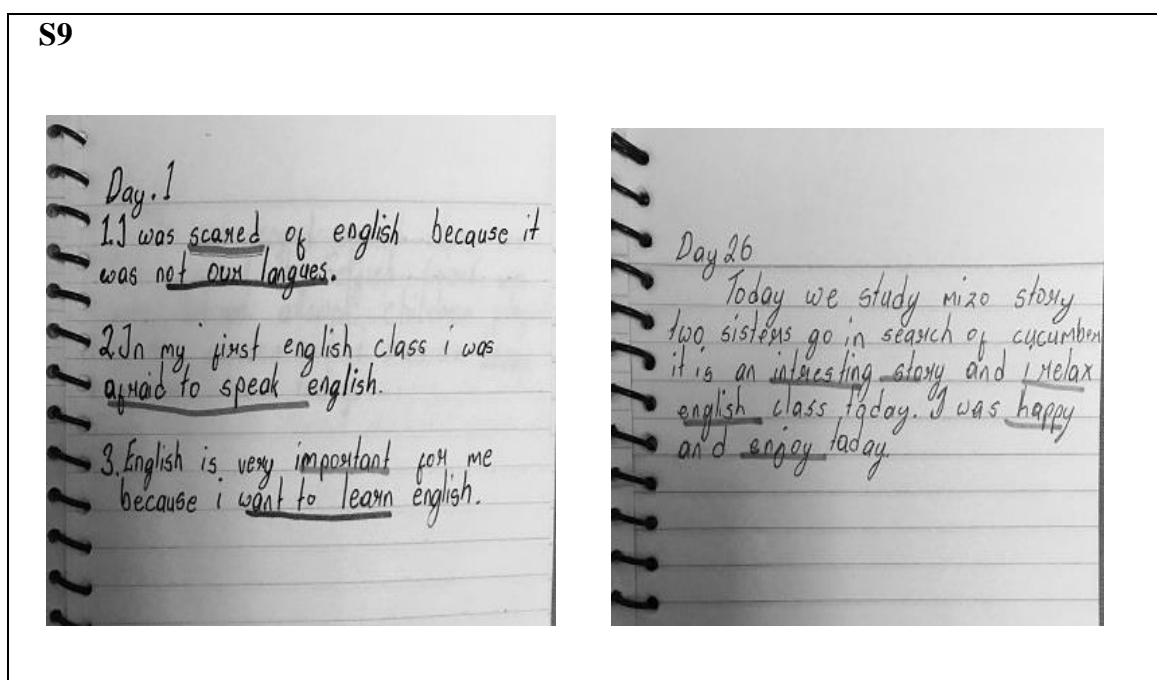 S9
Day. 1
1. I was scared of english because it
was not our langues.
2. In my first english class i was
afraid to speak english.
3. English is very important for me
because i want to learn english.
Day 26
Today we study mizo story
two sisters go in search of cucumber
it is an intresting story and i relax
english class today. I was happy
and enjoy today.